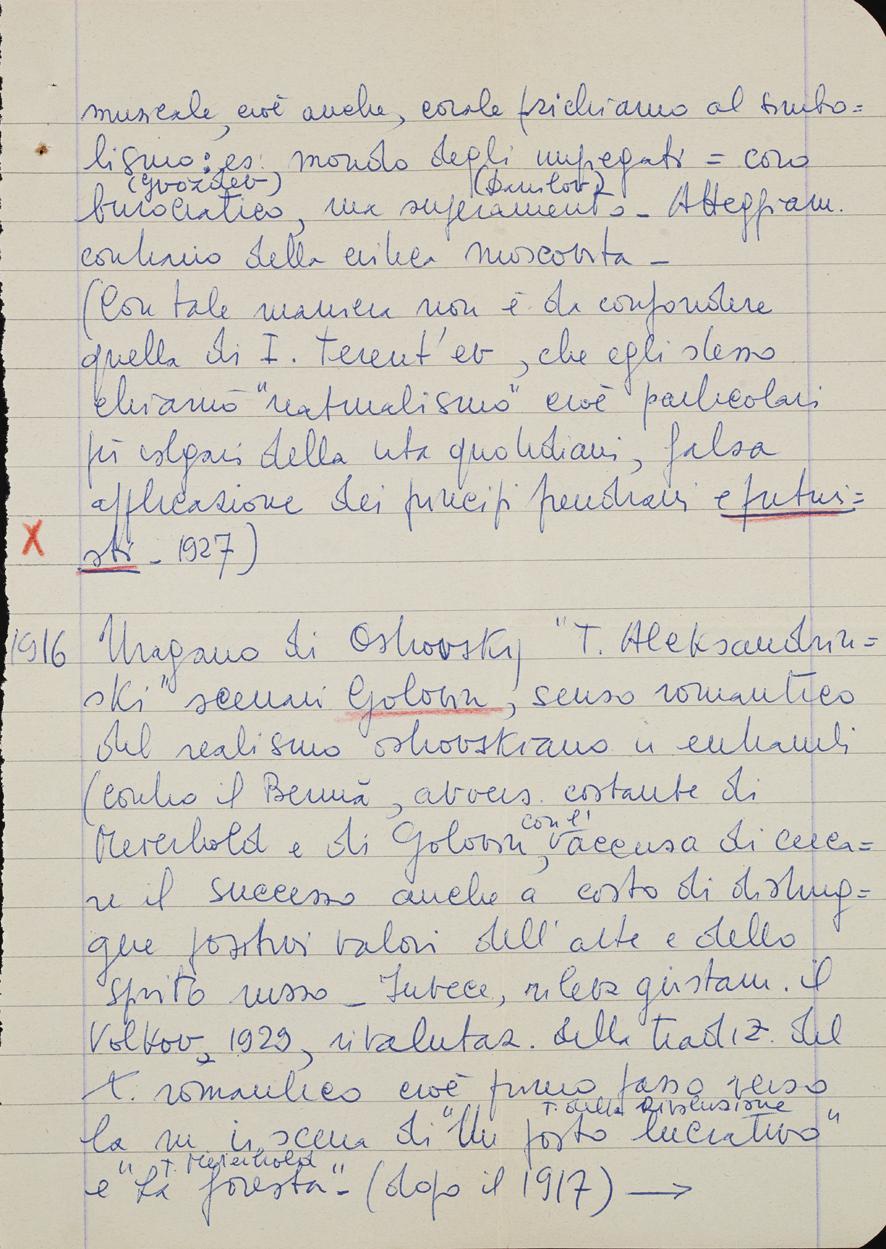 musicale, cioè anche, corale (richiamo al simbo=
lismo: es: mondo degli impiegati = coro
(Gvozdev) (Danilov)
burocratico, ma superamento - Atteggiam.
contrario della critica moscovita -
(Con tale maniera non è da confondere
quella di I. Terent'ev, che egli stesso
chiamò "naturalismo" cioè particolari
più volgari della vita quotidiana, falsa
applicazione dei principi freudiani e futuri=
X sti - 1927)
1916 Uragano di Ostrovskij "T. Aleksandrin=
ski" scenari Golovin, senso romantico
del realismo ostrovskiano
(contro il Benuà, avvers. costante di
con l'
Meierhold e di Golovin, accusa di cerca=
re il successo anche a costo di distrug=
gere positivi valori dell'arte e dello
spirito russo - Invece, rileva giustam. il
Volkov, 1929, rivalutaz. della tradiz. del
t. romantico cioè primo passo verso
T. della Rivoluzione
la m. in scena di "Un posto lucrativo"
T. Meierhold
e "La foresta" - (dopo il 1917) →